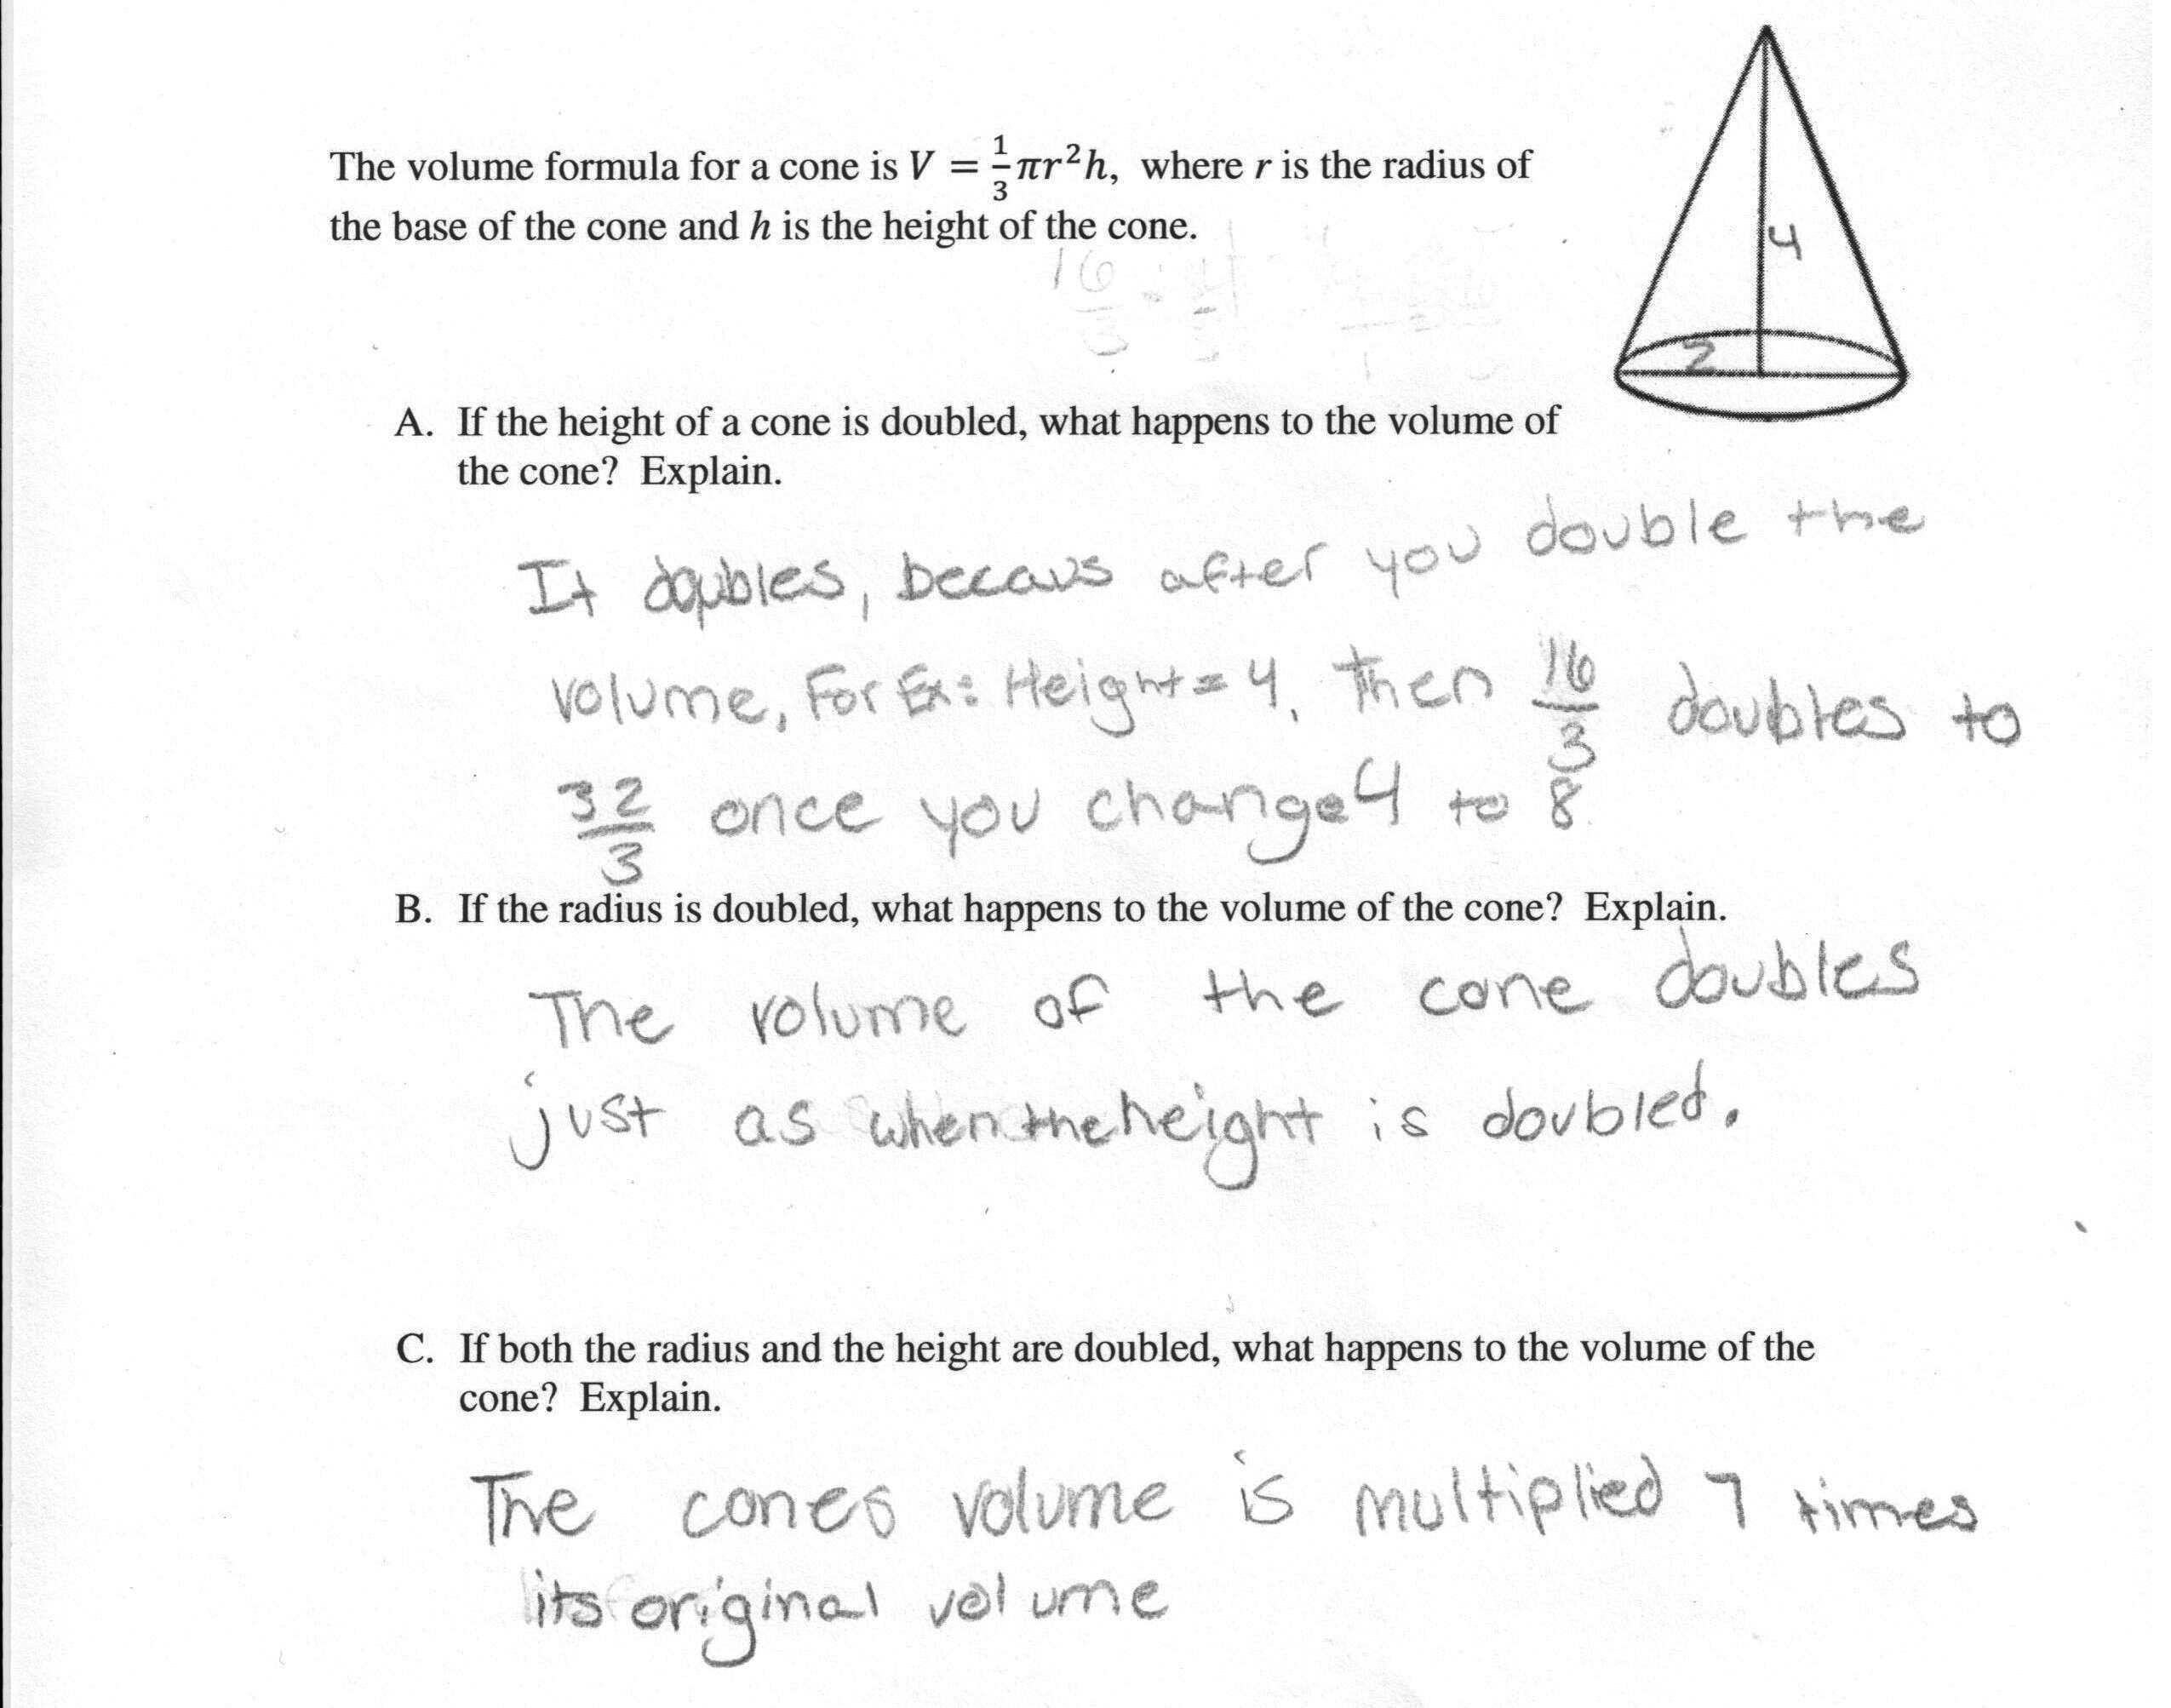 The volume formula for a cone is V = 1/3 πr²h, where r is the radius of
the base of the cone and h is the height of the cone.
4
2
16/3
A. If the height of a cone is doubled, what happens to the volume of
the cone? Explain.
It doubles, becaus after you double the
volume, For Ex: Height = 4, Then 16/3 doubles to
32/3 once you change 4 to 8
B. If the radius is doubled, what happens to the volume of the cone? Explain.
The volume of the cone doubles
just as when the height is doubled.
C. If both the radius and the height are doubled, what happens to the volume of the
cone? Explain.
The cones volume is multiplied 7 times
its original volume